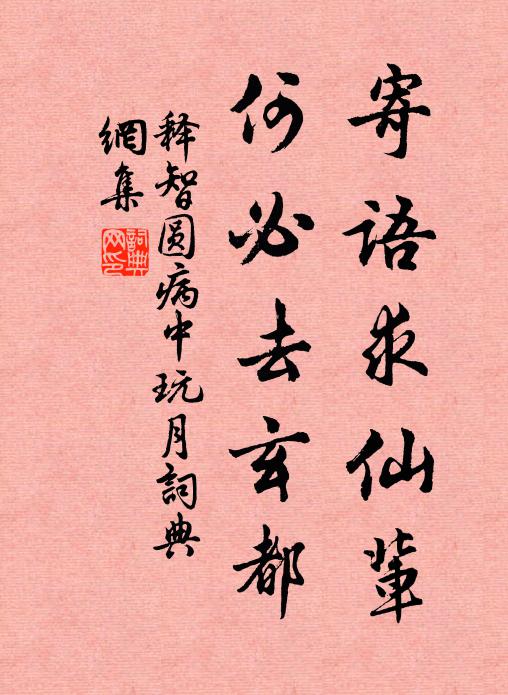 寄语求仙辈
何必去玄都
释智圆病中玩月词典
網集
詞典網印